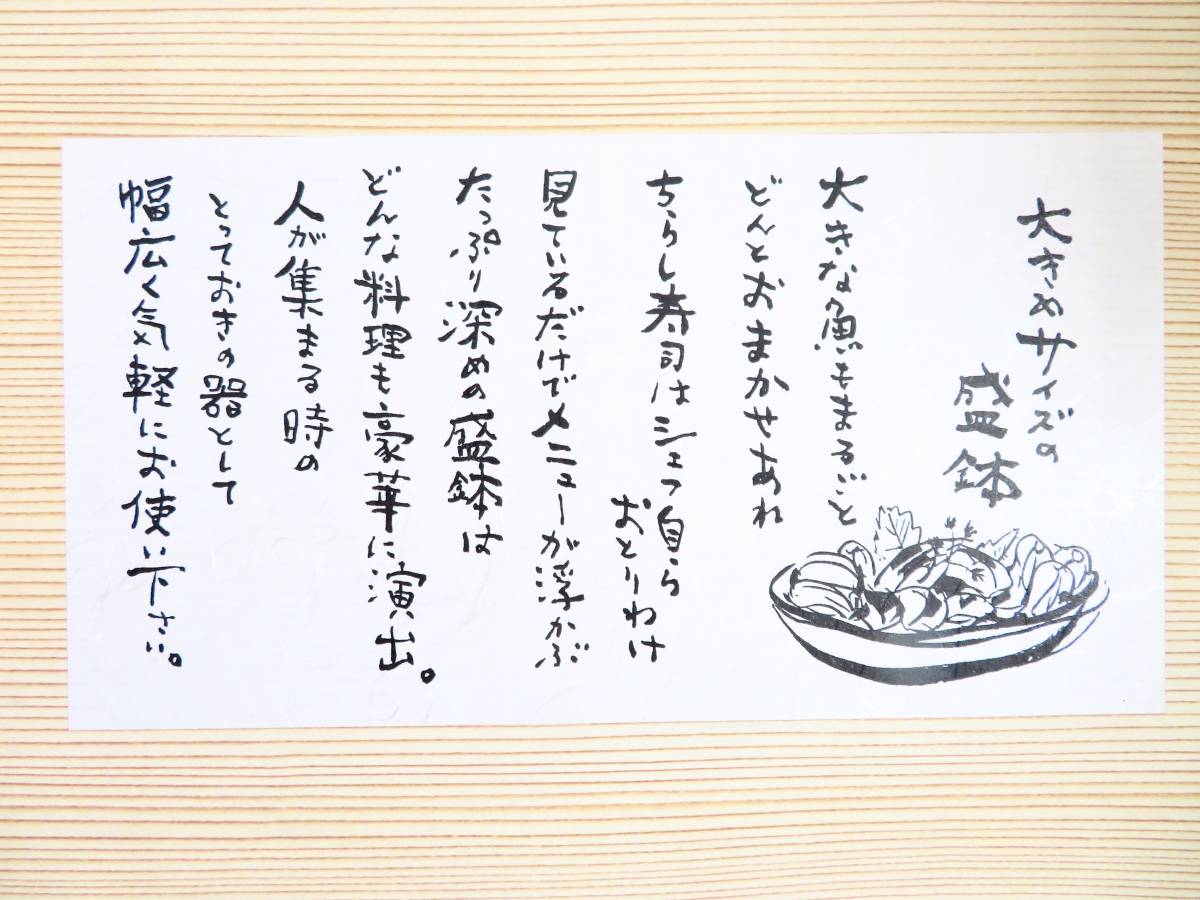 大きめサイズの
盛鉢
大きな魚もまるごと
どんとおまかせあれ
ちらし寿司はシェフ自ら
おとりわけ
見ているだけでメニューが浮かぶ
たっぷり深めの盛鉢は
どんな料理も豪華に演出。
人が集まる時の
とっておきの器として
幅広く気軽にお使い下さい。